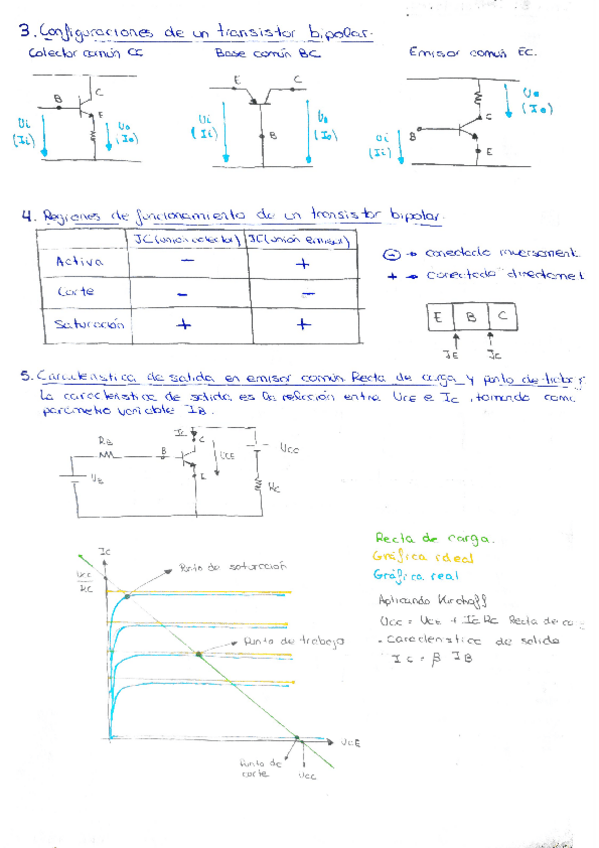 3. Configuraciones de un transistor bipolar.
Colector común CC
Base común BC
Emisor común EC.
B
C
E
Ui
(Ii)
Uo
(Io)
E
C
B
Ui
(Ii)
Uo
(Io)
Uo
(Io)
C
B
E
Ui
(Ii)
4. Regiones de funcionamiento de un transistor bipolar.
JC (unión colector) JC (unión emisor)
Activa - +
Corte - -
Saturación + +
- → conectado inversament
+ → conectado directamet
E B C
JE JC
5. Característica de salida en emisor común. Recta de carga y punto de trabaj
La característica de salida es la relación entre UCE e IC, tomando como
parámetro variable IB.
RB
B
IC
C
UCE
E
UCC
RC
UB
IC
UCC
RC
Punto de saturación
Punto de trabajo
UCE
Punto de
corte
UCC
Recta de carga.
Gráfica ideal
Gráfica real
Aplicando Kirchoff
UCC = UCE + IC RC Recta de ca
. Característica de salida
IC = β IB